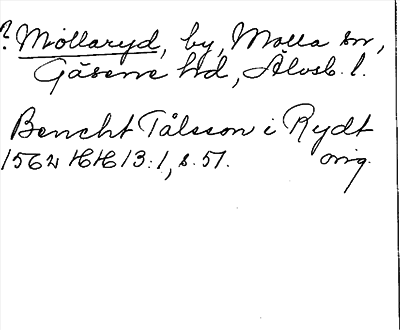 ? Mollaryd, by, Mölla sn,
Gäsene hd, Älvsb. l.
Bencht Tålsson i Rydt
1562 HH 13:1, s. 51. orig.